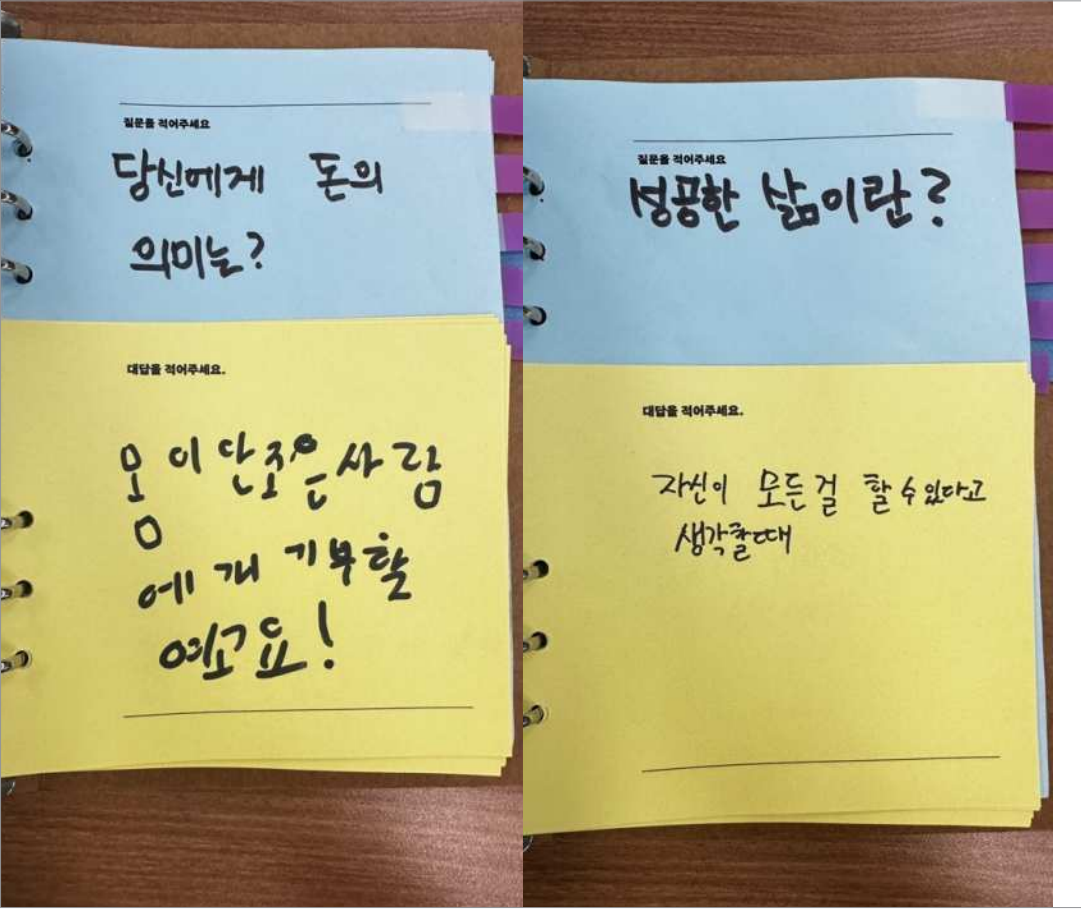 질문을 적어주세요
당신에게 돈의
의미는?
대답을 적어주세요.
몸이 안조은사람
에개 기부할
여고요!
질문을 적어주세요
성공한 삶이란?
대답을 적어주세요.
자신이 모든걸 할 수 있다고
생각할때